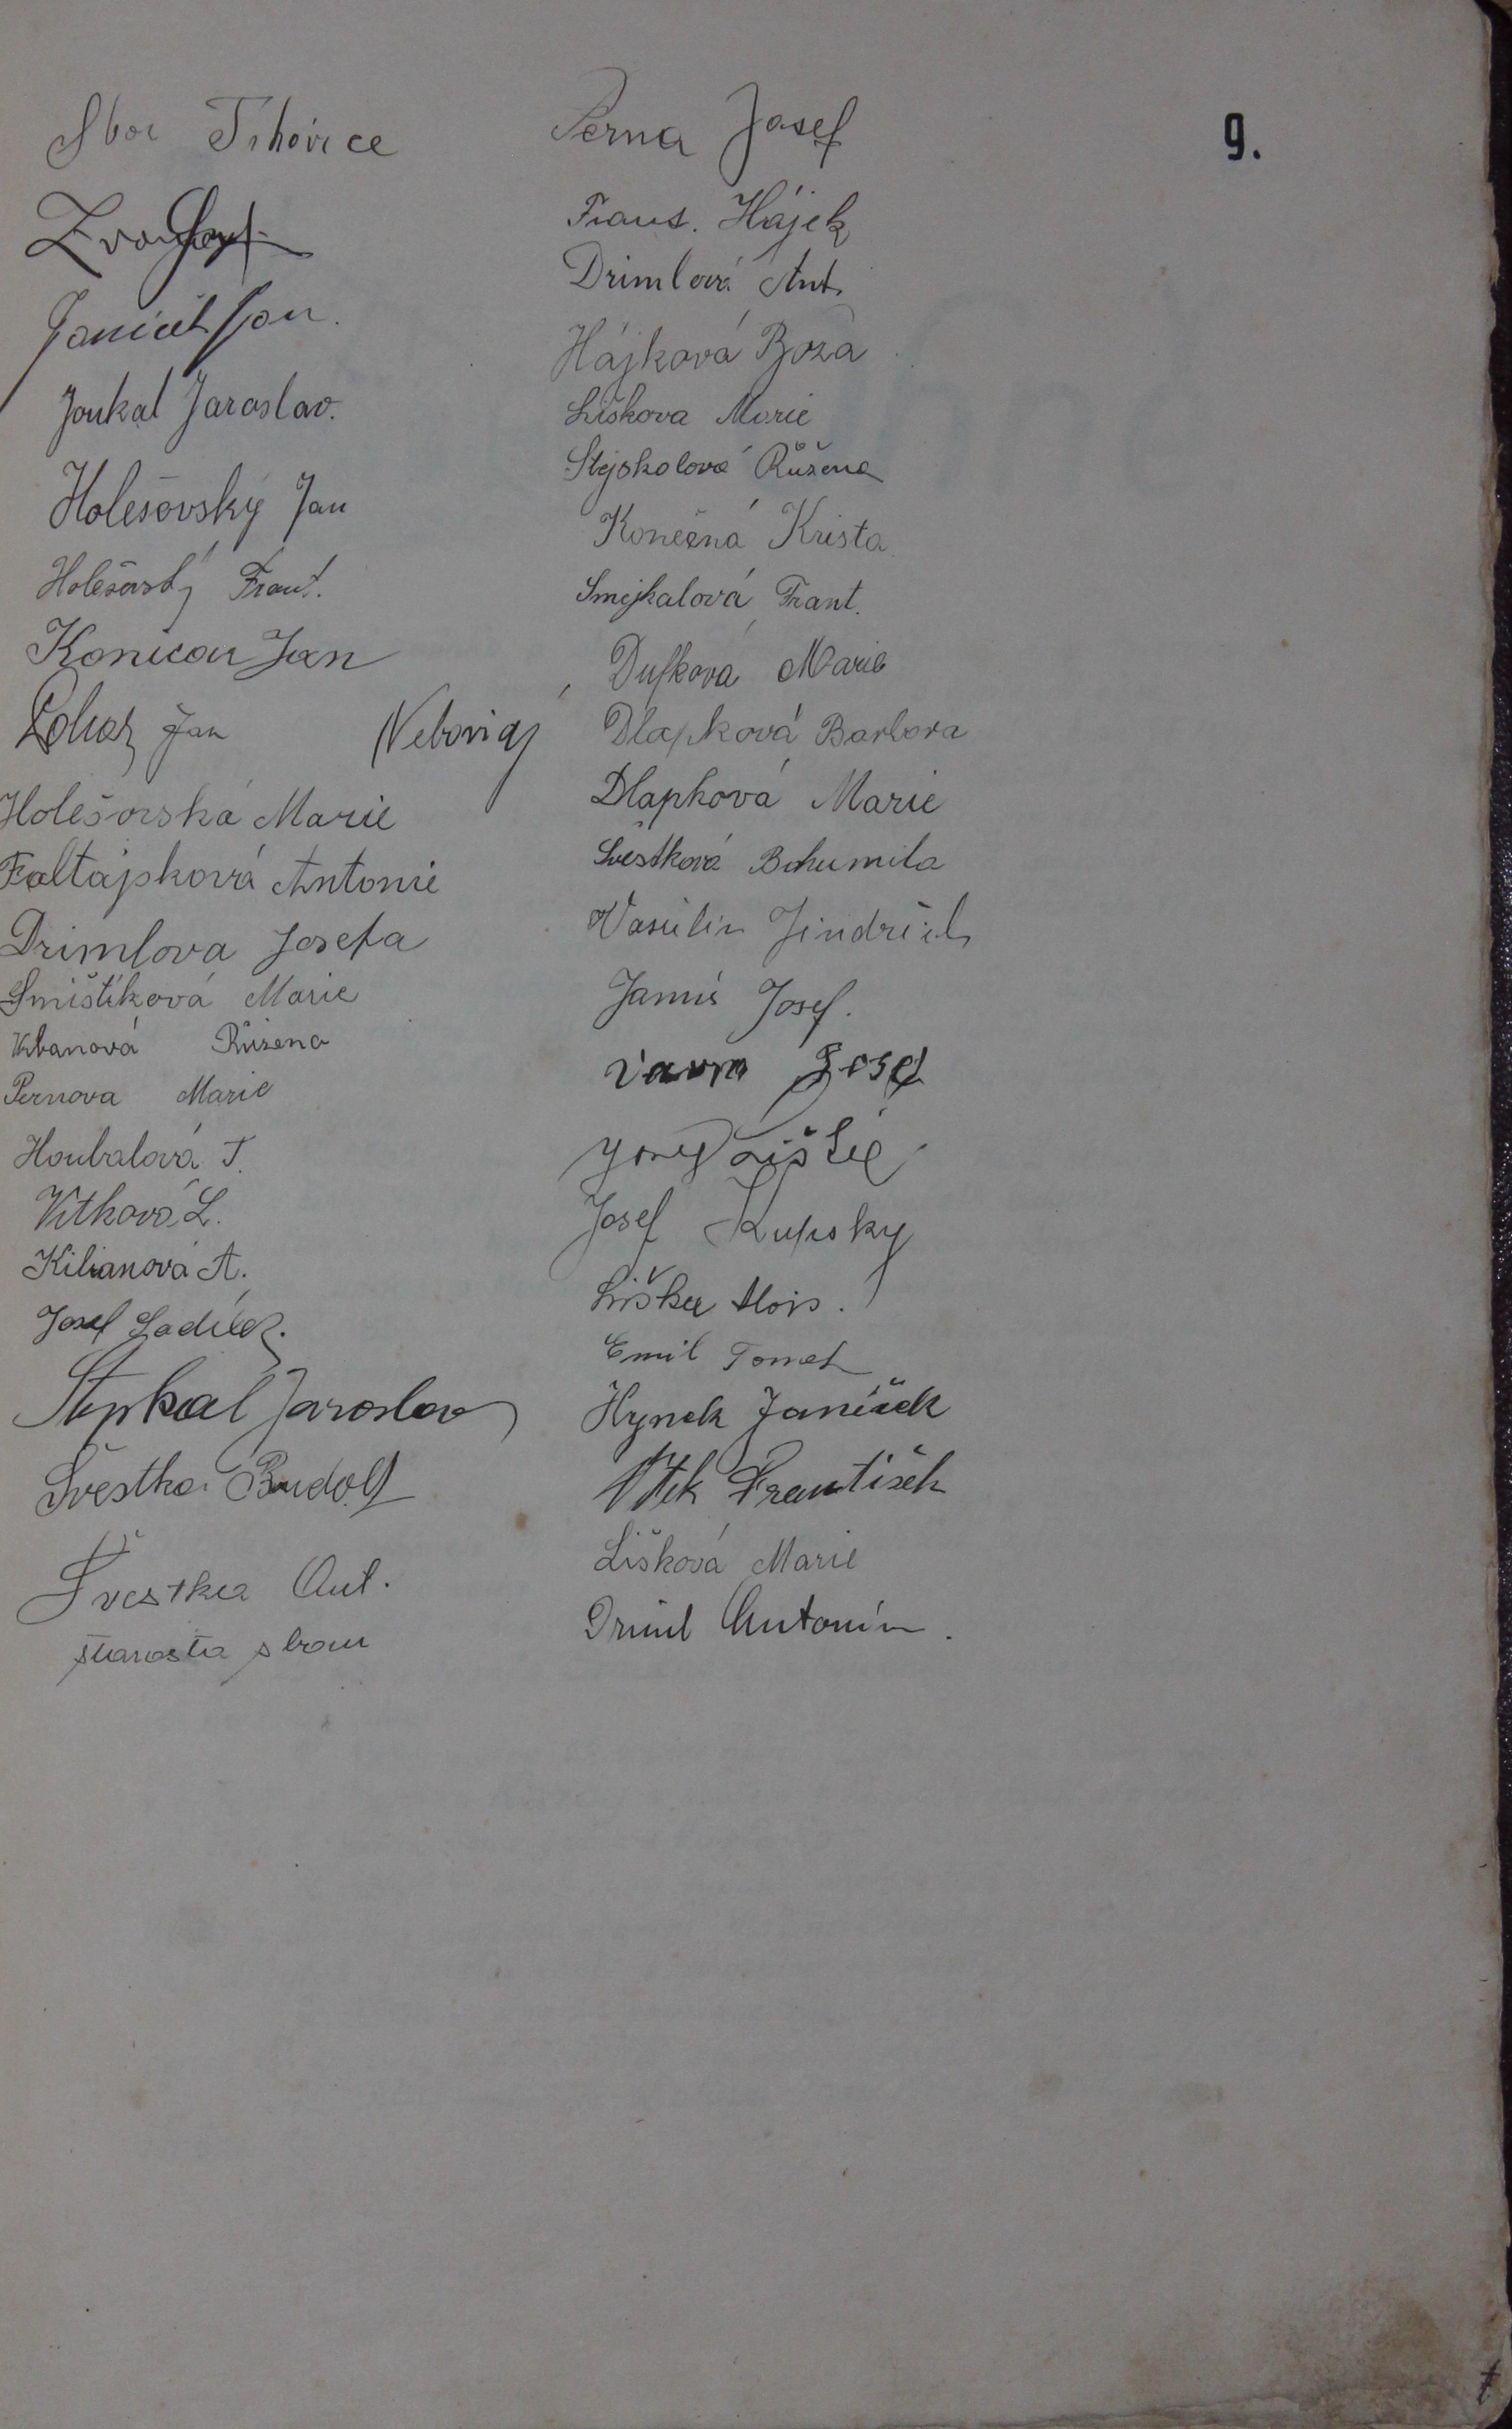 Sbor Trhovice
Jan
Joukal Jaroslav.
Holešovský Jan
Holešovský Frant.
Konicar Jan
Jan Nebovidy
Holešovská Marie
Faltajsková Antonie
Drimlova Josefa
Smištiková Marie
Urbanová Růžena
Pernova Marie
Houbalová T.
Vítková L.
Kilianová A.
Josef Sadílek.
Stejskal Jaroslav
Švestka Rudolf
Švestka Ant.
starosta sboru
Perna Josef
Frant. Hájek
Drimlová Ant.
Hájková Boža
Lišková Marie
Stejskalová Růžena
Konečná Krista
Smejkalová Frant.
Dufková Marie
Dlapková Barbora
Dlapková Marie
Švestková Bohumila
Vasulin Jindřich
Janiš Josef.
Vavra Josef
Josef
Josef Kupsky
Liška Alois.
Emil Tomek
Hynek Janíček
Vítek František
Lišková Marie
Driml Antonín.
9.